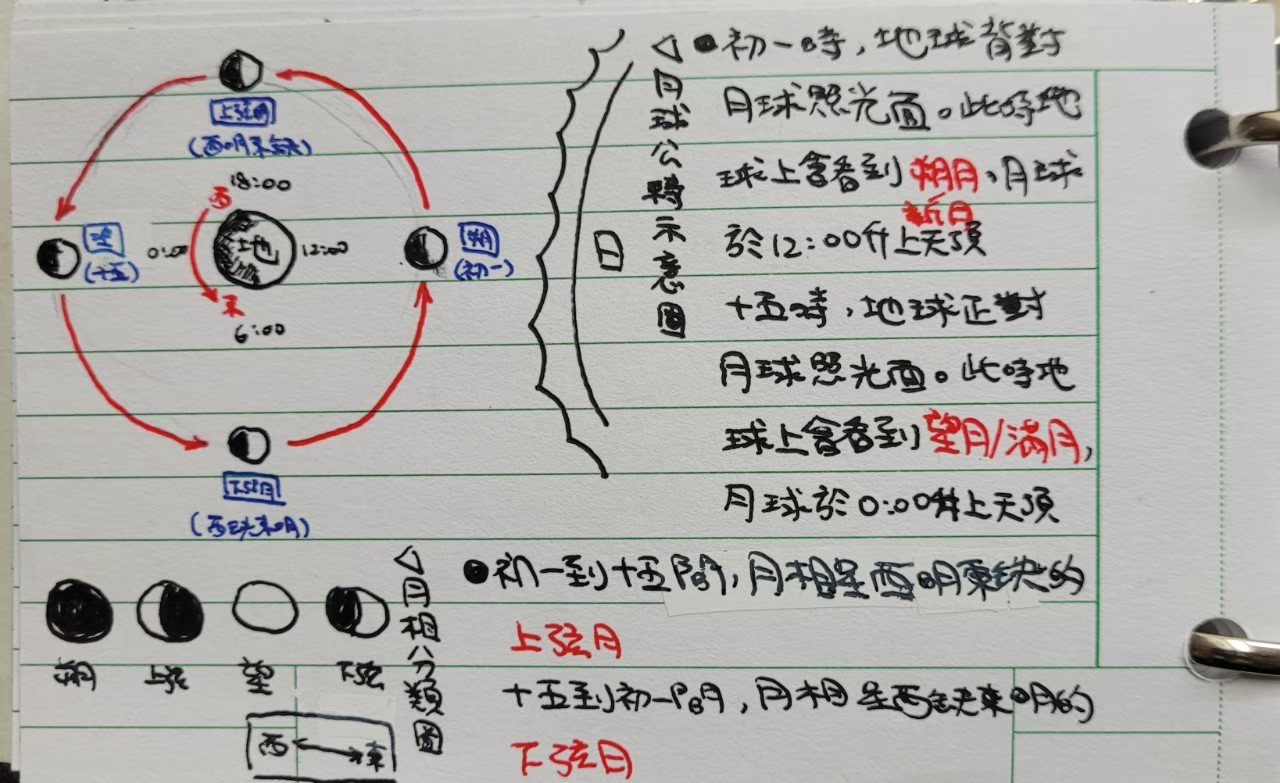 上弦月
(西明東缺)
18:00
西
望
(十五)
0:00
地
12:00
朔
(初一)
東
6:00
下弦月
(西缺東明)
日
◁月球公轉示意圖
●初一時，地球背對
月球照光面。此時地
球上會看到朔月，月球
新月
於12:00升上天頂
十五時，地球正對
月球照光面。此時地
球上會看到望月/滿月，
月球於0:00升上天頂
朔
上弦
望
下弦
西↔東
◁月相分類圖
●初一到十五間，月相呈西明東缺的
上弦月
十五到初一間，月相呈西缺東明的
下弦月